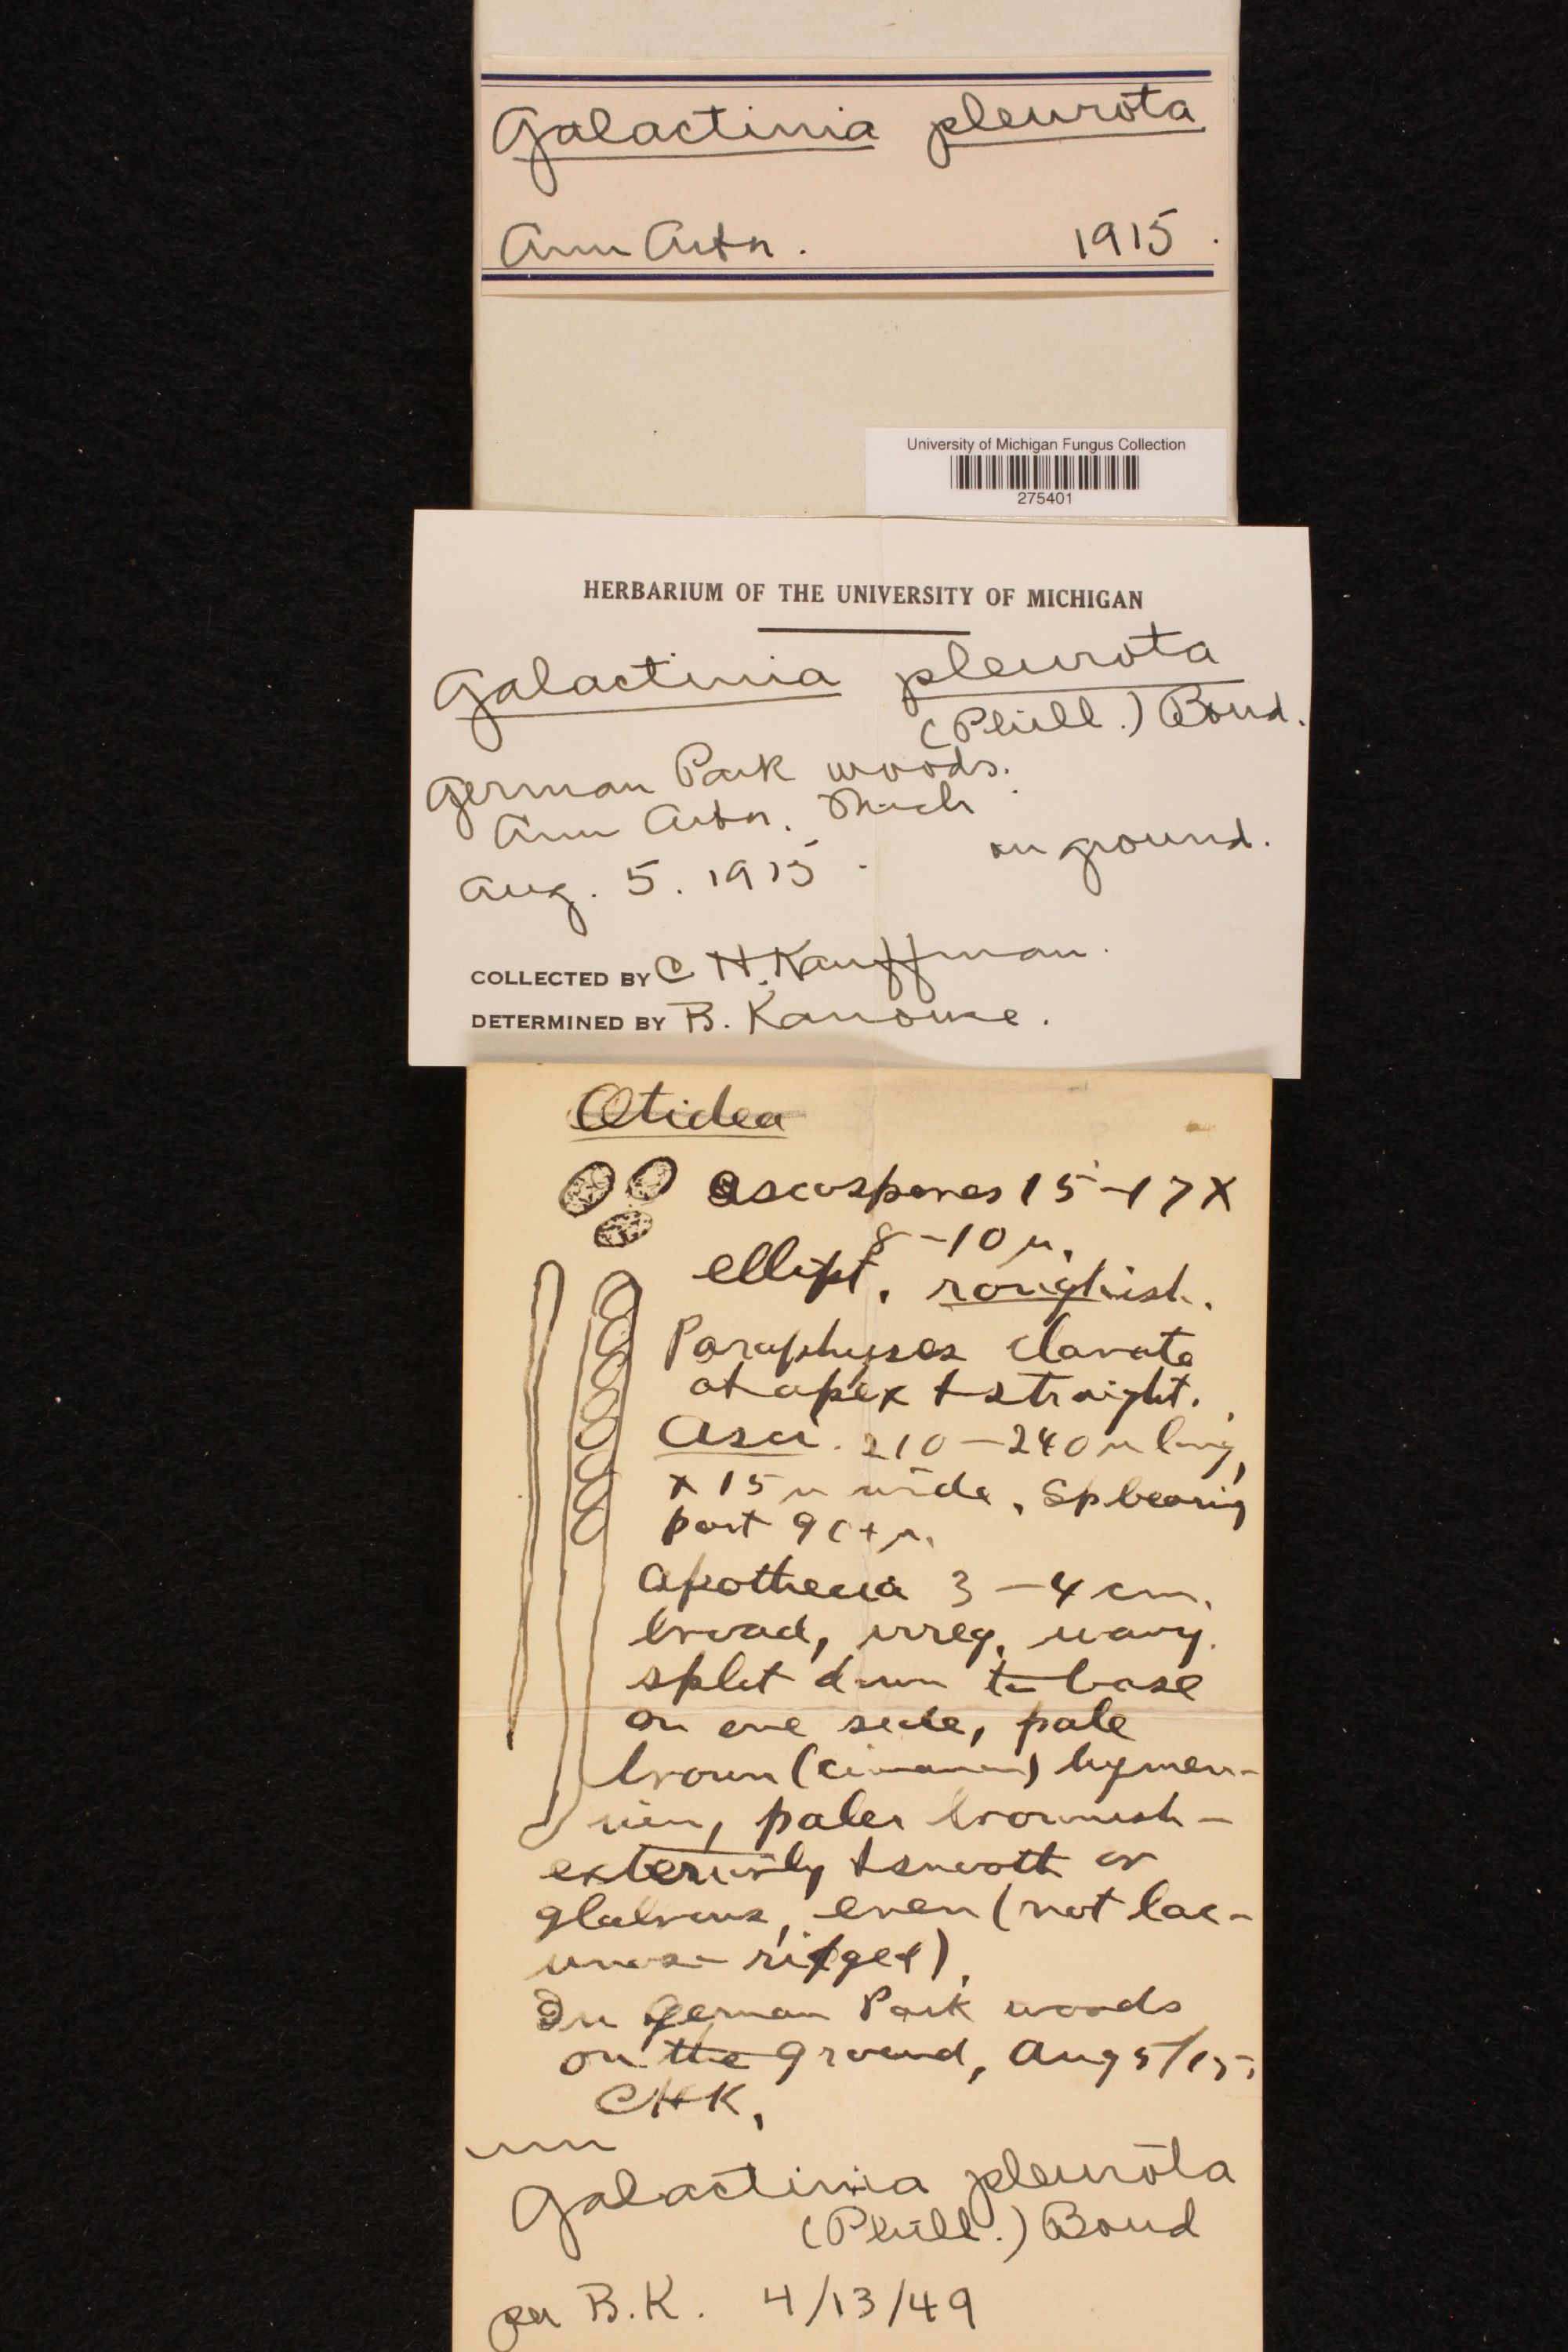 Galactinia pleurota
Ann Arbor. 1915.
University of Michigan Fungus Collection
275401
HERBARIUM OF THE UNIVERSITY OF MICHIGAN
Galactinia pleurota
(Phill.) Boud.
German Park woods.
Ann Arbor. Mich
on ground.
Aug. 5. 1915.
COLLECTED BY C H. Kauffman.
DETERMINED BY B. Kanouse.
Otidea
ascospores 15-17 X
8-10 µ.
ellipt. roughish.
Paraphyses clavate
at apex + straight.
Asci. 210-240 µ long,
x 15 µ wide, Sp bearing
part 90+ µ.
Apothecia 3-4 cm.
broad, irreg. wavy.
split down to base
on one side, pale
brown (cinnamon) hymen-
ium, paler brownish-
exteriorly + smooth or
glabrous, even (not lac-
unose
In German Park woods
on the ground, Aug 5/15.
CHK.
Galactinia pleurota
(Phill.) Boud
per B.K. 4/13/49